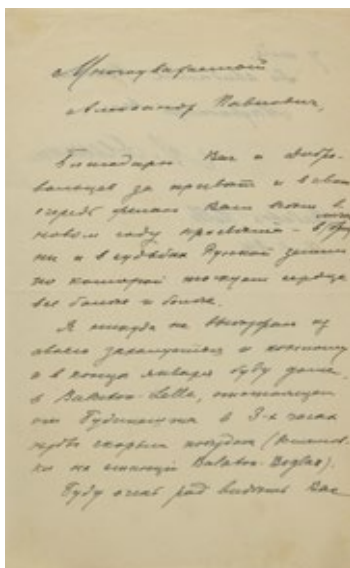 Многоуважаемый
Александр Павлович,
Благодарю Вас и добро-
вольцев за привет и в свою
очередь желаю Вам всем в
новом году просвета - в личной жиз-
ни и в судьбах Русской земли
по которой тоскует сердце
все более и более.
Я никуда не выезжаю из
своего захолустья и потому
и в конце января буду дома,
в Balaton-Lelle, отстоящем
от Будапешта в 3-х часах
езды скорым поездом (
на станции Balaton-Boglar).
Буду очень рад видеть Вас